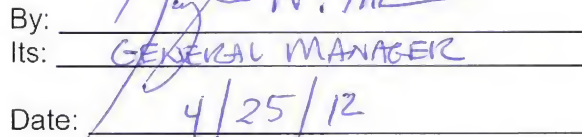 By:
Its: GENERAL MANAGER
Date: 4/25/12